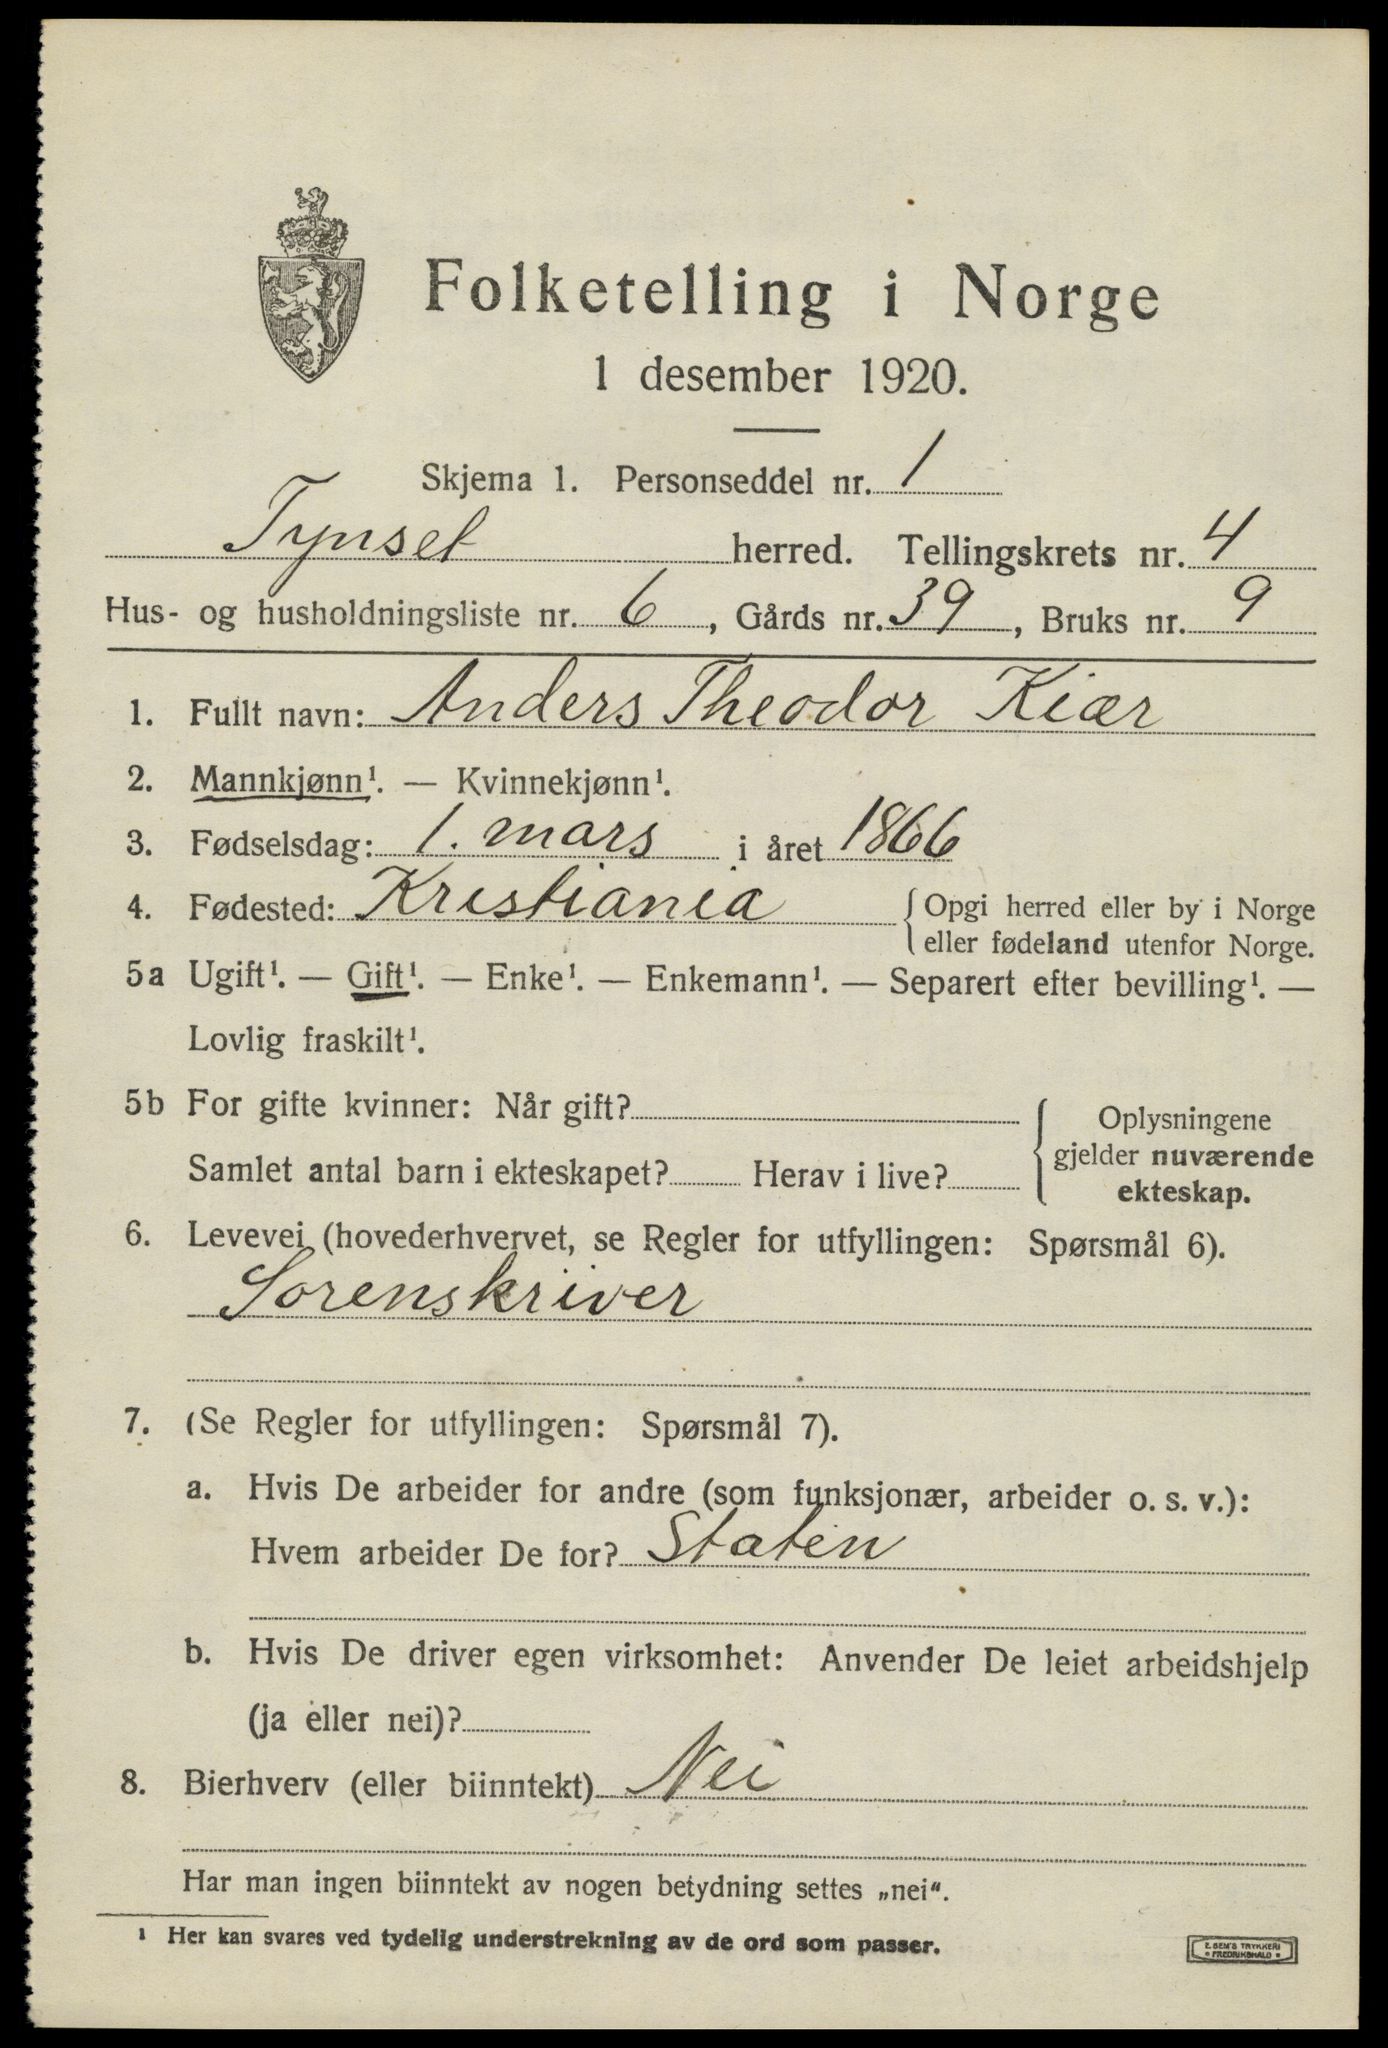 Folketelling i Norge
1 desember 1920.
Skjema 1. Personseddel nr. 1
Tynset herred. Tellingskrets nr. 4
Hus- og husholdningsliste nr. 6, Gårds nr. 39, Bruks nr. 9
1. Fullt navn: Anders Theodor Kiær
2. Mannkjønn¹. — Kvinnekjønn¹.
3. Fødselsdag: 1. mars i året 1866
4. Fødested: Kristiania { Opgi herred eller by i Norge
eller fødeland utenfor Norge.
5a Ugift¹. — Gift¹. — Enke¹. — Enkemann¹. — Separert efter bevilling¹. —
Lovlig fraskilt¹.
5b For gifte kvinner: Når gift? { Oplysningene
gjelder nuværende
ekteskap.
Samlet antal barn i ekteskapet? Herav i live?
6. Levevei (hovederhvervet, se Regler for utfyllingen: Spørsmål 6).
Sorenskriver
7. (Se Regler for utfyllingen: Spørsmål 7).
a. Hvis De arbeider for andre (som funksjonær, arbeider o. s. v.):
Hvem arbeider De for? Staten
b. Hvis De driver egen virksomhet: Anvender De leiet arbeidshjelp
(ja eller nei)?
8. Bierhverv (eller biinntekt) Nei
Har man ingen biinntekt av nogen betydning settes „nei“.
¹ Her kan svares ved tydelig understrekning av de ord som passer.
E. SEM'S TRYKKERI
• FREDRIKSHALD •